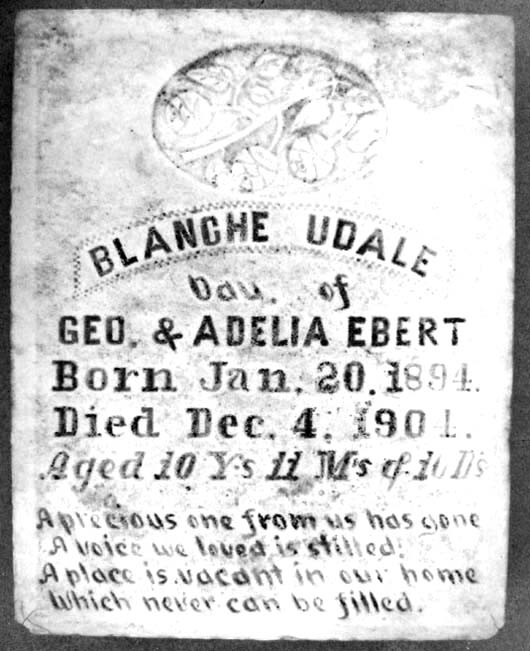 BLANCHE UDALE
Dau. of
GEO. & ADELIA EBERT
Born Jan. 20. 1894.
Died Dec. 4.
Aged 10 Y's 11 M's & D's
A precious one from us has gone
A voice we loved is stilled;
A place is vacant in our home
Which never can be filled.